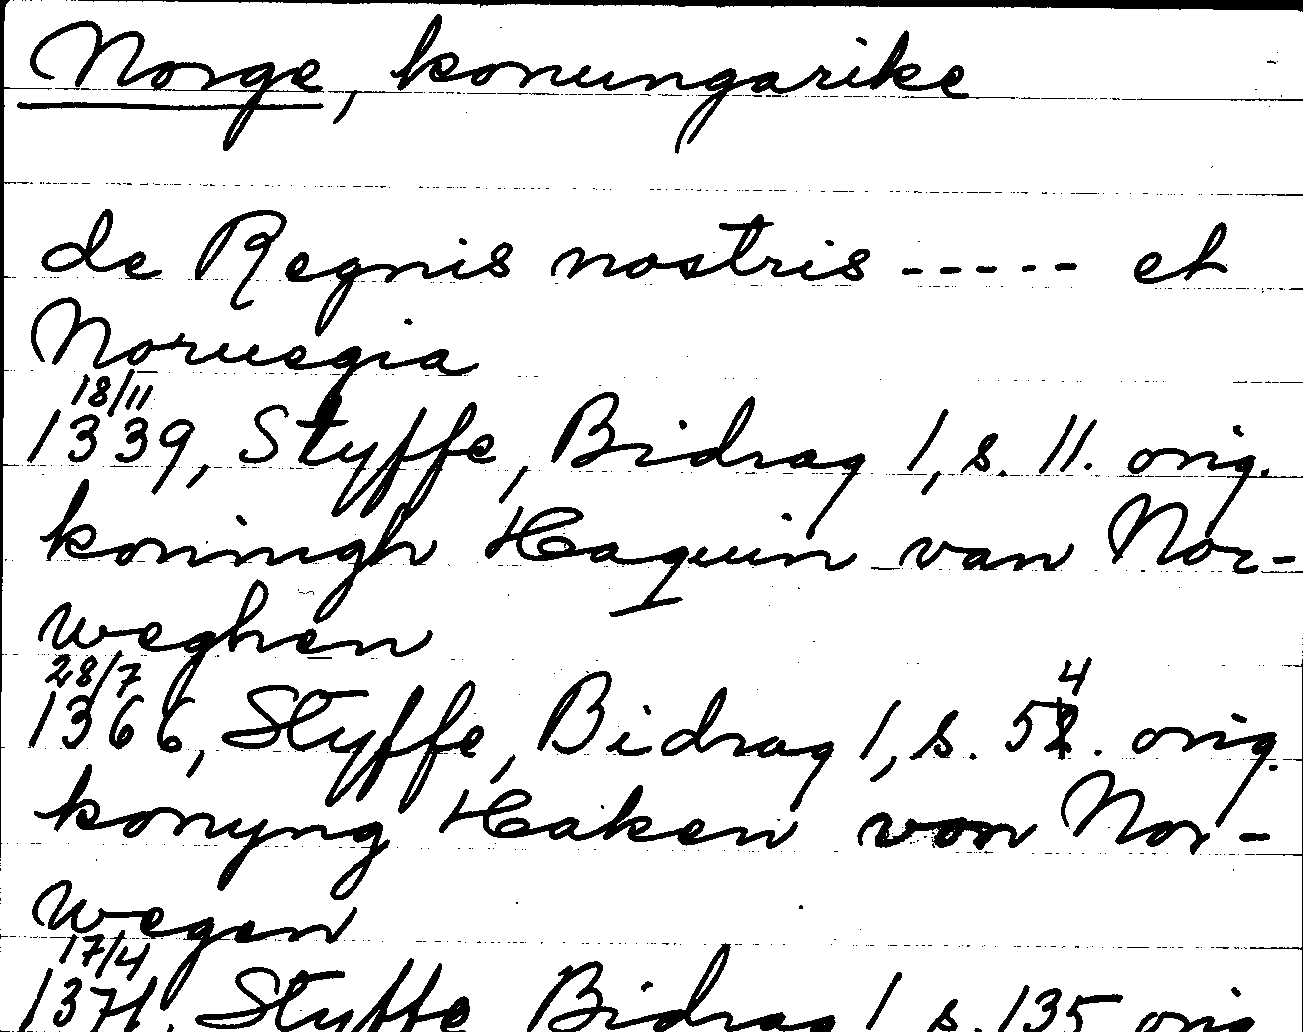 Norge, konungarike
de Regnis nostris ----- et
Noruegia
18/11
1339, Styffe, Bidrag 1, s. 11. orig.
koninigh Haquin van Nor-
weghen
28/7
1366, Styffe, Bidrag 1, s. 54. orig.
konyng Haken von Nor-
wegen
17/4
1371, Styffe Bidrag 1 s. 135 orig